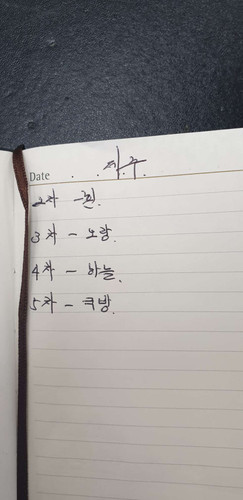 Date . .
2차 - 흰.
3차 - 노랑.
4차 - 하늘.
5차 -